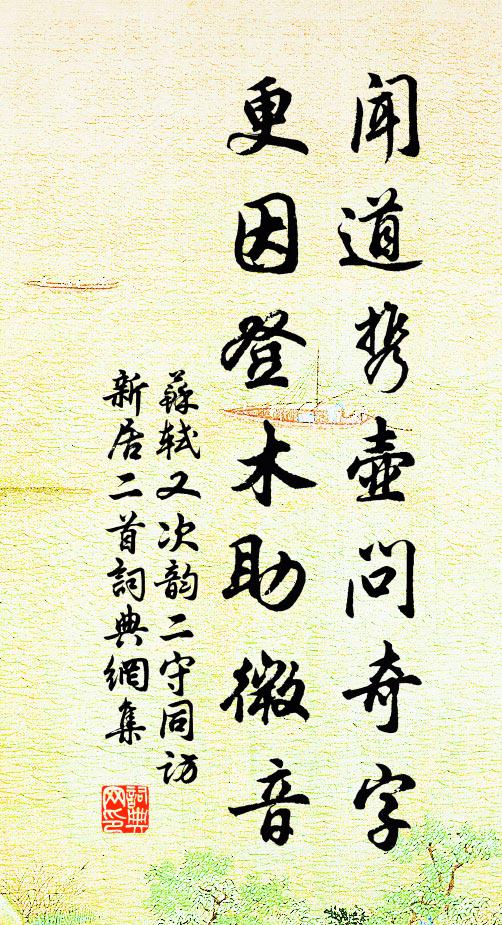 聞道携壺問奇字
更因登木助微音
蘇軾又次韵二守同訪
新居二首詞典網集
詞典
网印